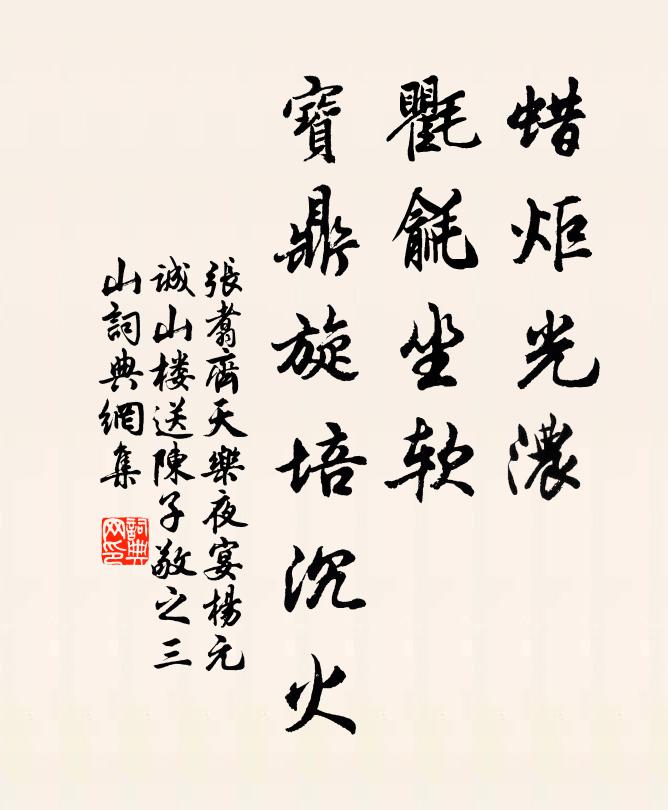 蜡炬光濃
氍毹坐軟
寶鼎旋培沉火
張翥齊天樂夜宴楊元
诚山楼送陳子敬之三
山詞典網集
詞典网印